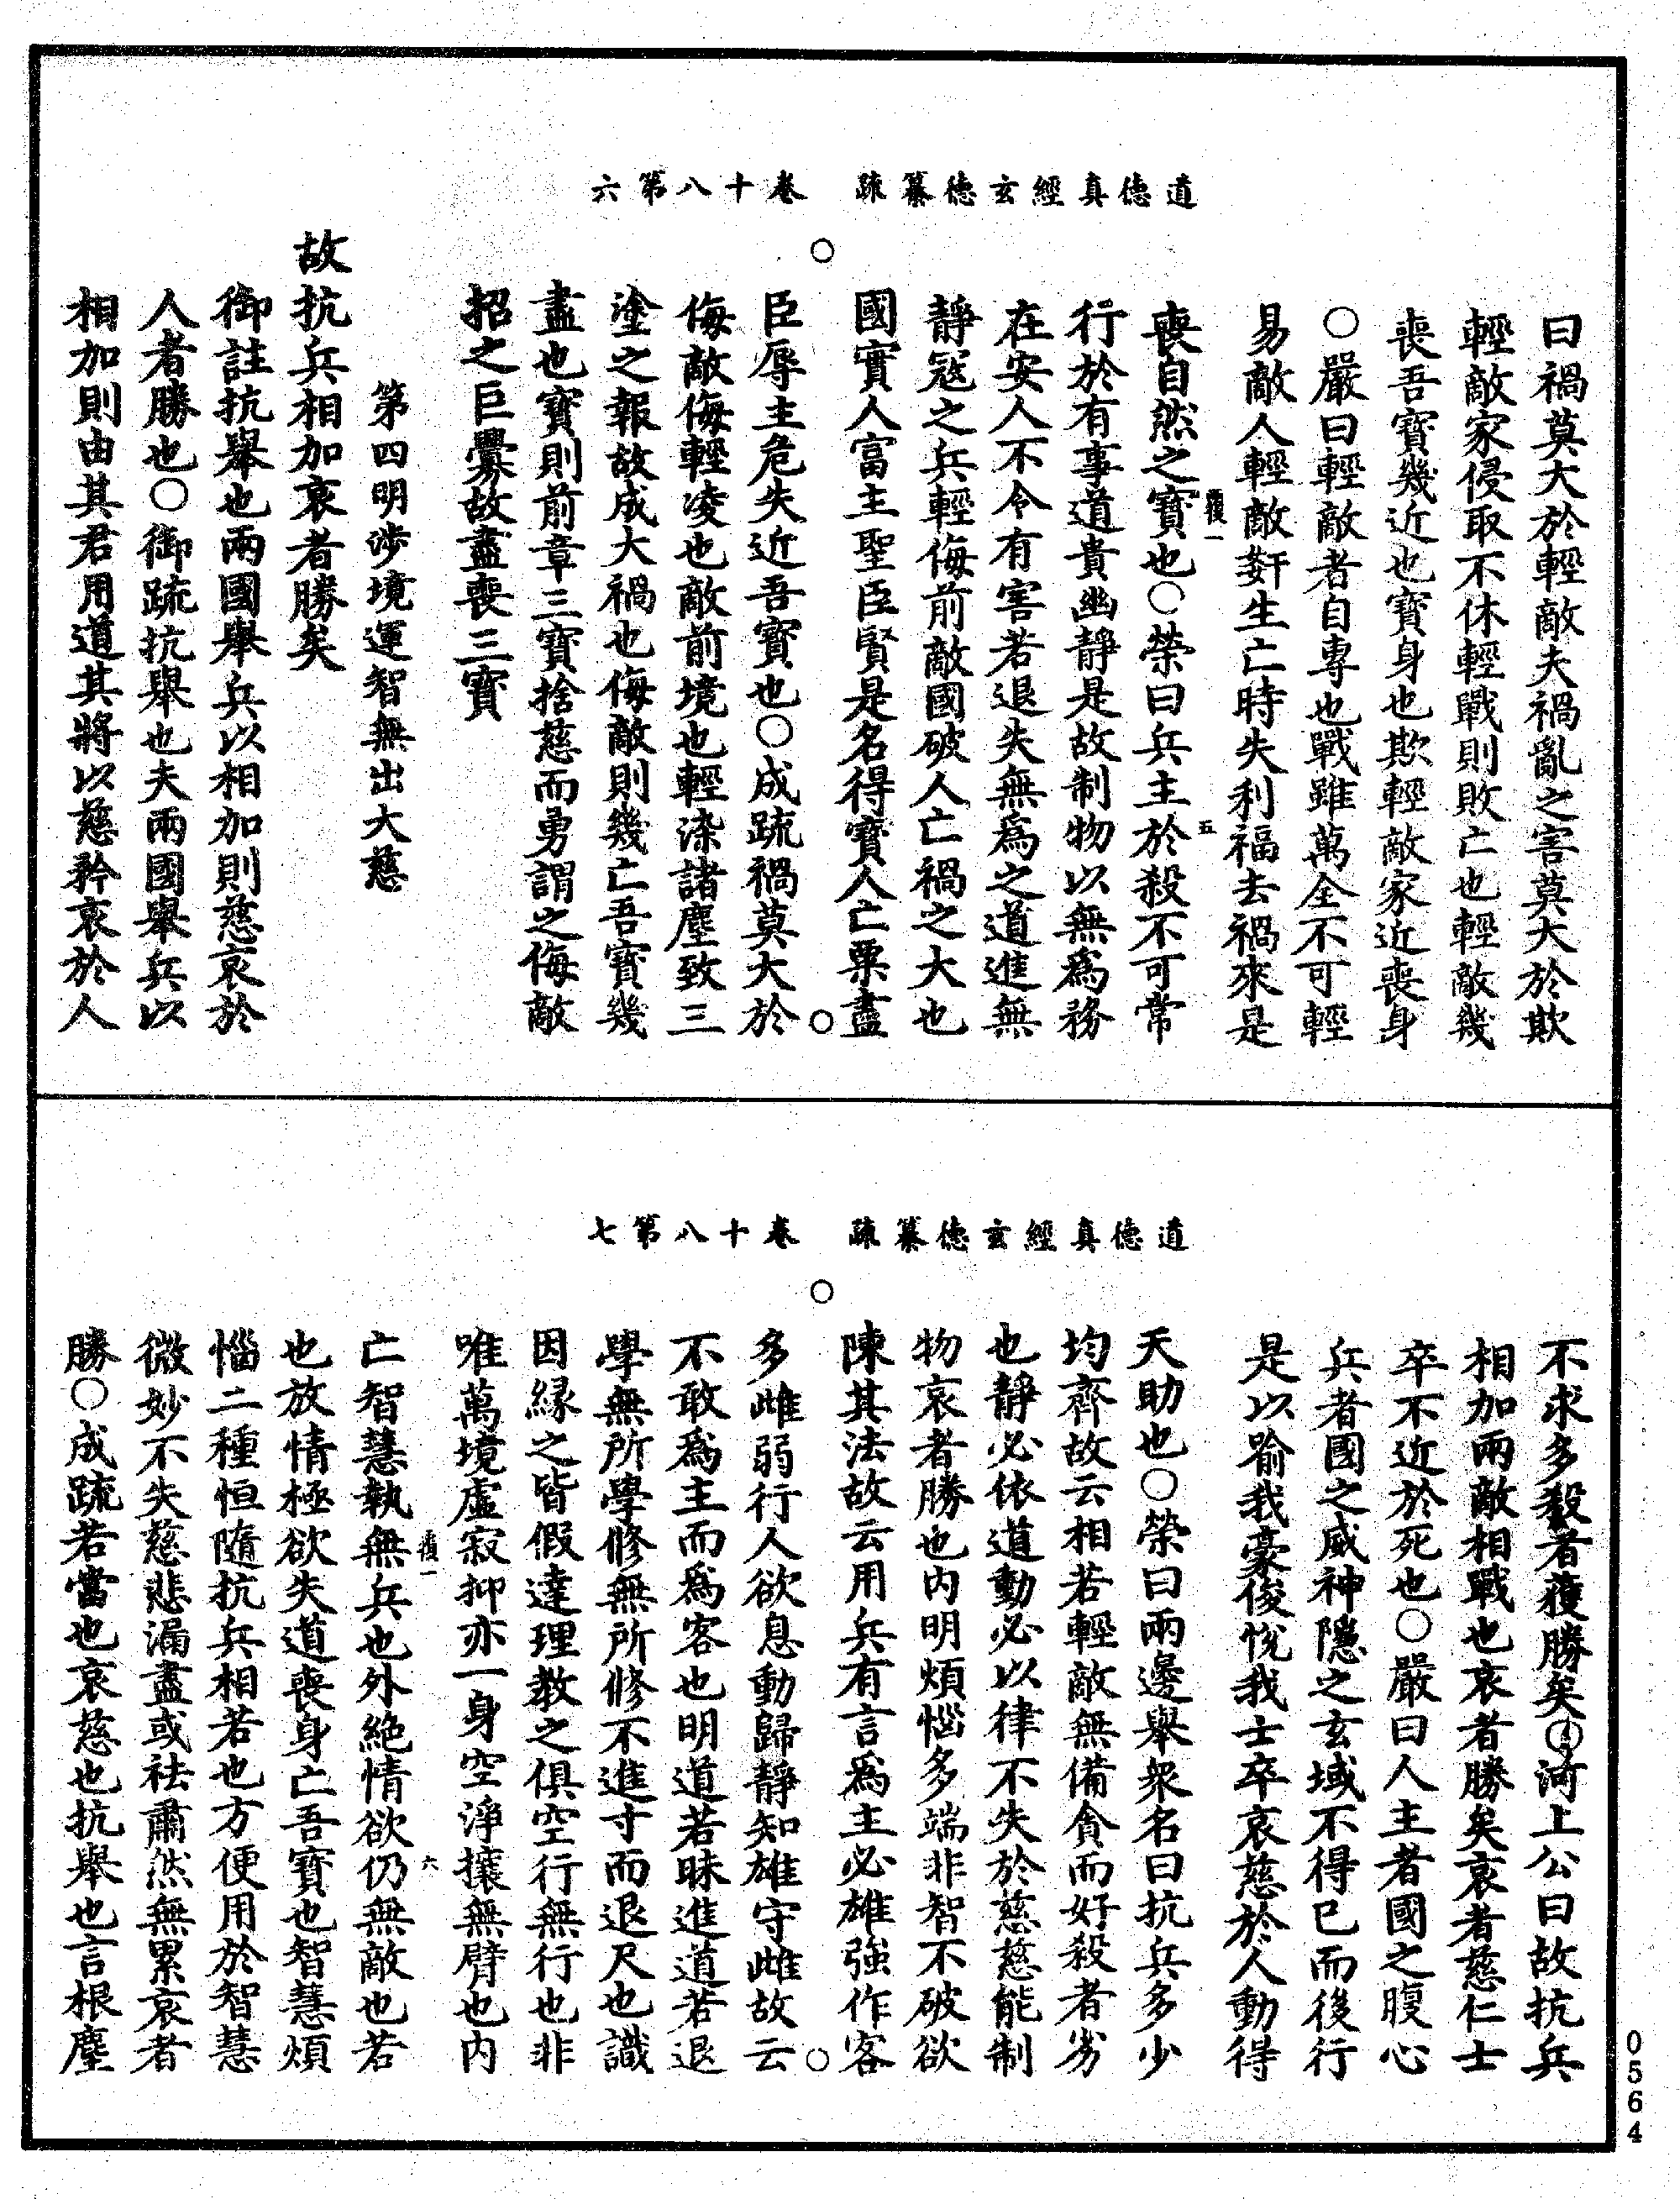 道德真經玄德纂疏　卷十八第六
曰禍莫大於輕敵夫禍亂之害莫大於欺
輕敵家侵取不休輕戰則敗亡也輕敵幾
喪吾寶幾近也寶身也欺輕敵家近喪身
○嚴曰輕敵者自專也戰雖萬全不可輕
易敵人輕敵姧生亡時失利福去禍來是
喪自然之寶也○榮曰兵主於殺不可常
覆一
五
行於有事道貴幽靜是故制物以無爲務
在安人不令有害若退失無爲之道進無
靜寇之兵輕侮前敵國破人亡禍之大也
國實人富主聖臣賢是名得寶人亡粟盡
臣辱主危失近吾寶也○成疏禍莫大於
侮敵侮輕凌也敵前境也輕染諸塵致三
塗之報故成大禍也侮敵則幾亡吾寶幾
盡也寶則前章三寶捨慈而勇謂之侮敵
招之巨釁故盡喪三寶
第四明涉境運智無出大慈
故抗兵相加哀者勝矣
御註抗舉也兩國舉兵以相加則慈哀於
人者勝也○御疏抗舉也夫兩國舉兵以
相加則由其君用道其將以慈矜哀於人
道德真經玄德纂疏　卷十八第七
不求多殺者獲勝矣○河上公曰故抗兵
相加兩敵相戰也哀者勝矣哀者慈仁士
卒不近於死也○嚴曰人主者國之腹心
兵者國之威神隱之玄域不得已而後行
是以喻我豪俊悅我士卒哀慈於人動得
天助也○榮曰兩邊舉衆名曰抗兵多少
均齊故云相若輕敵無備貪而好殺者劣
也靜必依道動必以律不失於慈慈能制
物哀者勝也內明煩惱多端非智不破欲
陳其法故云用兵有言爲主必雄強作客
多雌弱行人欲息動歸靜知雄守雌故云
不敢爲主而爲客也明道若昧進道若退
學無所學修無所修不進寸而退尺也識
因緣之皆假達理教之俱空行無行也非
唯萬境虛寂抑亦一身空淨攘無臂也內
覆一
六
亡智慧執無兵也外絕情欲仍無敵也若
也放情極欲失道喪身亡吾寶也智慧煩
惱二種恒隨抗兵相若也方便用於智慧
微妙不失慈悲漏盡或袪肅然無累哀者
勝○成疏若當也哀慈也抗舉也言根塵
0564